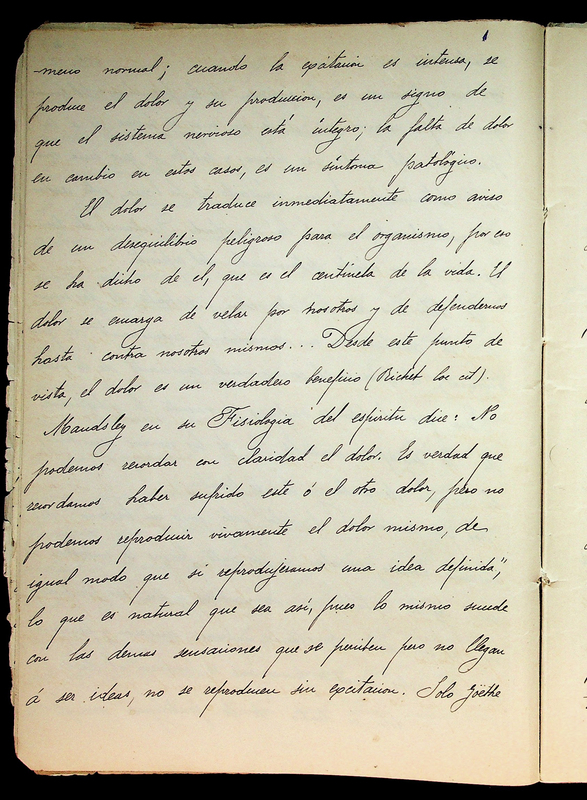 6
-meno normal; cuando la excitacion es intensa, se
produce el dolor y su produccion, es un signo de
que el sistema nervioso está íntegro; la falta de dolor
en cambio en estos casos, es un síntoma patológico.
El dolor se traduce inmediatamente como aviso
de un desequilibrio peligroso para el organismo, por eso
se ha dicho de el, que es el centinela de la vida. El
dolor se encarga de velar por nosotros y de defendernos
hasta contra nosotros mismos... Desde este punto de
vista, el dolor es un verdadero beneficio (Richet loc cit).
Maudsley en su Fisiologia del espiritu dice: No
podemos recordar con claridad el dolor. Es verdad que
recordamos haber sufrido este ó el otro dolor, pero no
podemos reproducir vivamente el dolor mismo, de
igual modo que si reprodujeramos una idea definida",
lo que es natural que sea así, pues lo mismo sucede
con las demas sensaciones que se perciben pero no llegan
á ser ideas, no se reproducen sin excitacion. Solo Göethe